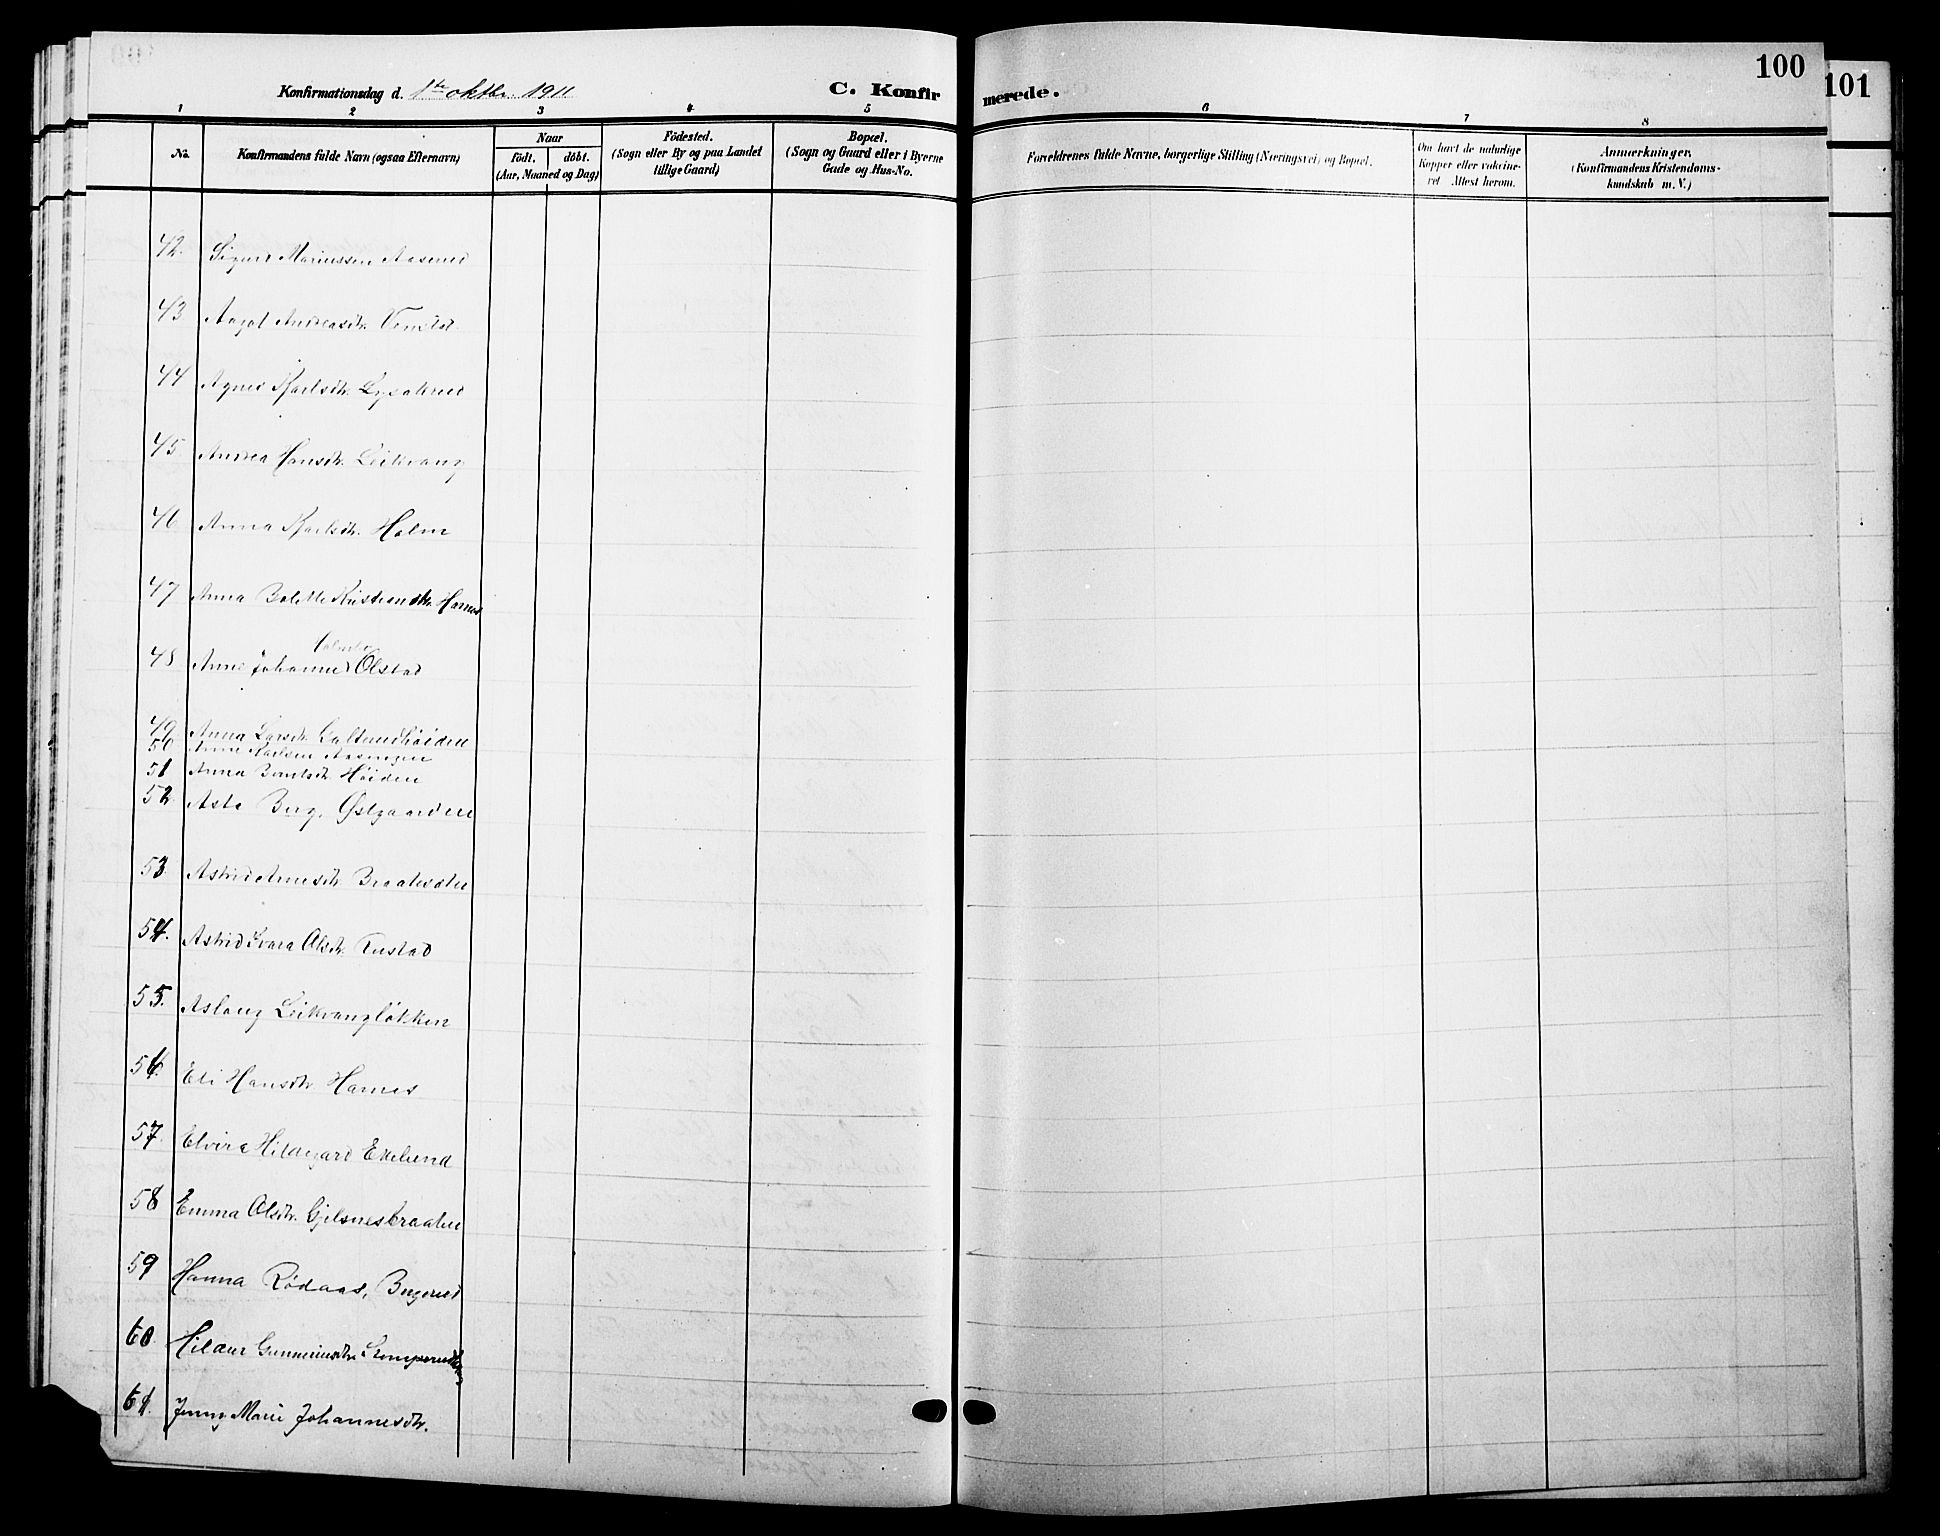 100
101
Konfirmationsdag d. 1ste oktbr. 1911
C. Konfirmerede.
1 2 3 4 5 6 7 8
No.
Konfirmandens fulde Navn (ogsaa Efternavn)
Naar
födt. döbt.
(Aar, Maaned og Dag)
Födested.
(Sogn eller By og paa Landet
tillige Gaard)
Bopæl.
(Sogn og Gaard eller i Byerne
Gade og Hus-No.
Forældrenes fulde Navne, borgerlige Stilling (Næringsvei) og Bopæl.
Om havt de naturlige
Kopper eller vaksine-
ret Attest herom.
Anmærkninger,
(Konfirmandens Kristendoms-
kundskab m. V.)
42. Sigurd Mariussen Aaserud
43 Aagot Andreasdtr.
44 Agnes Karlsdtr. Lysakrud
45 Andrea Hansdtr. Leikvang
46 Anna Karlsdtr. Holm
47 Anna Bolette Kristiansdtr. Harnes
48 Anne Johanne Olstad
49 Anna Larsdtr. Galterudhöiden
50 Anne Karlsen
51 Anna Berntsdtr. Höiden
52. Asta Berg, Østgaarden
53. Astrid Arnesdtr. Braatesdtr
54. Astrid Kvara Olsdtr. Rustad
55. Aslaug Leikvanglökken
56. Eli Hansdtr. Harnes
57. Elvira Hildegard Ekelund
58 Emma Olsdtr. Gjelsnesbraaten
59 Hanna Rödaas, Bergerud
60. Hildur Gunneriusdtr.
61. Jenny Marie Johannesdtr.